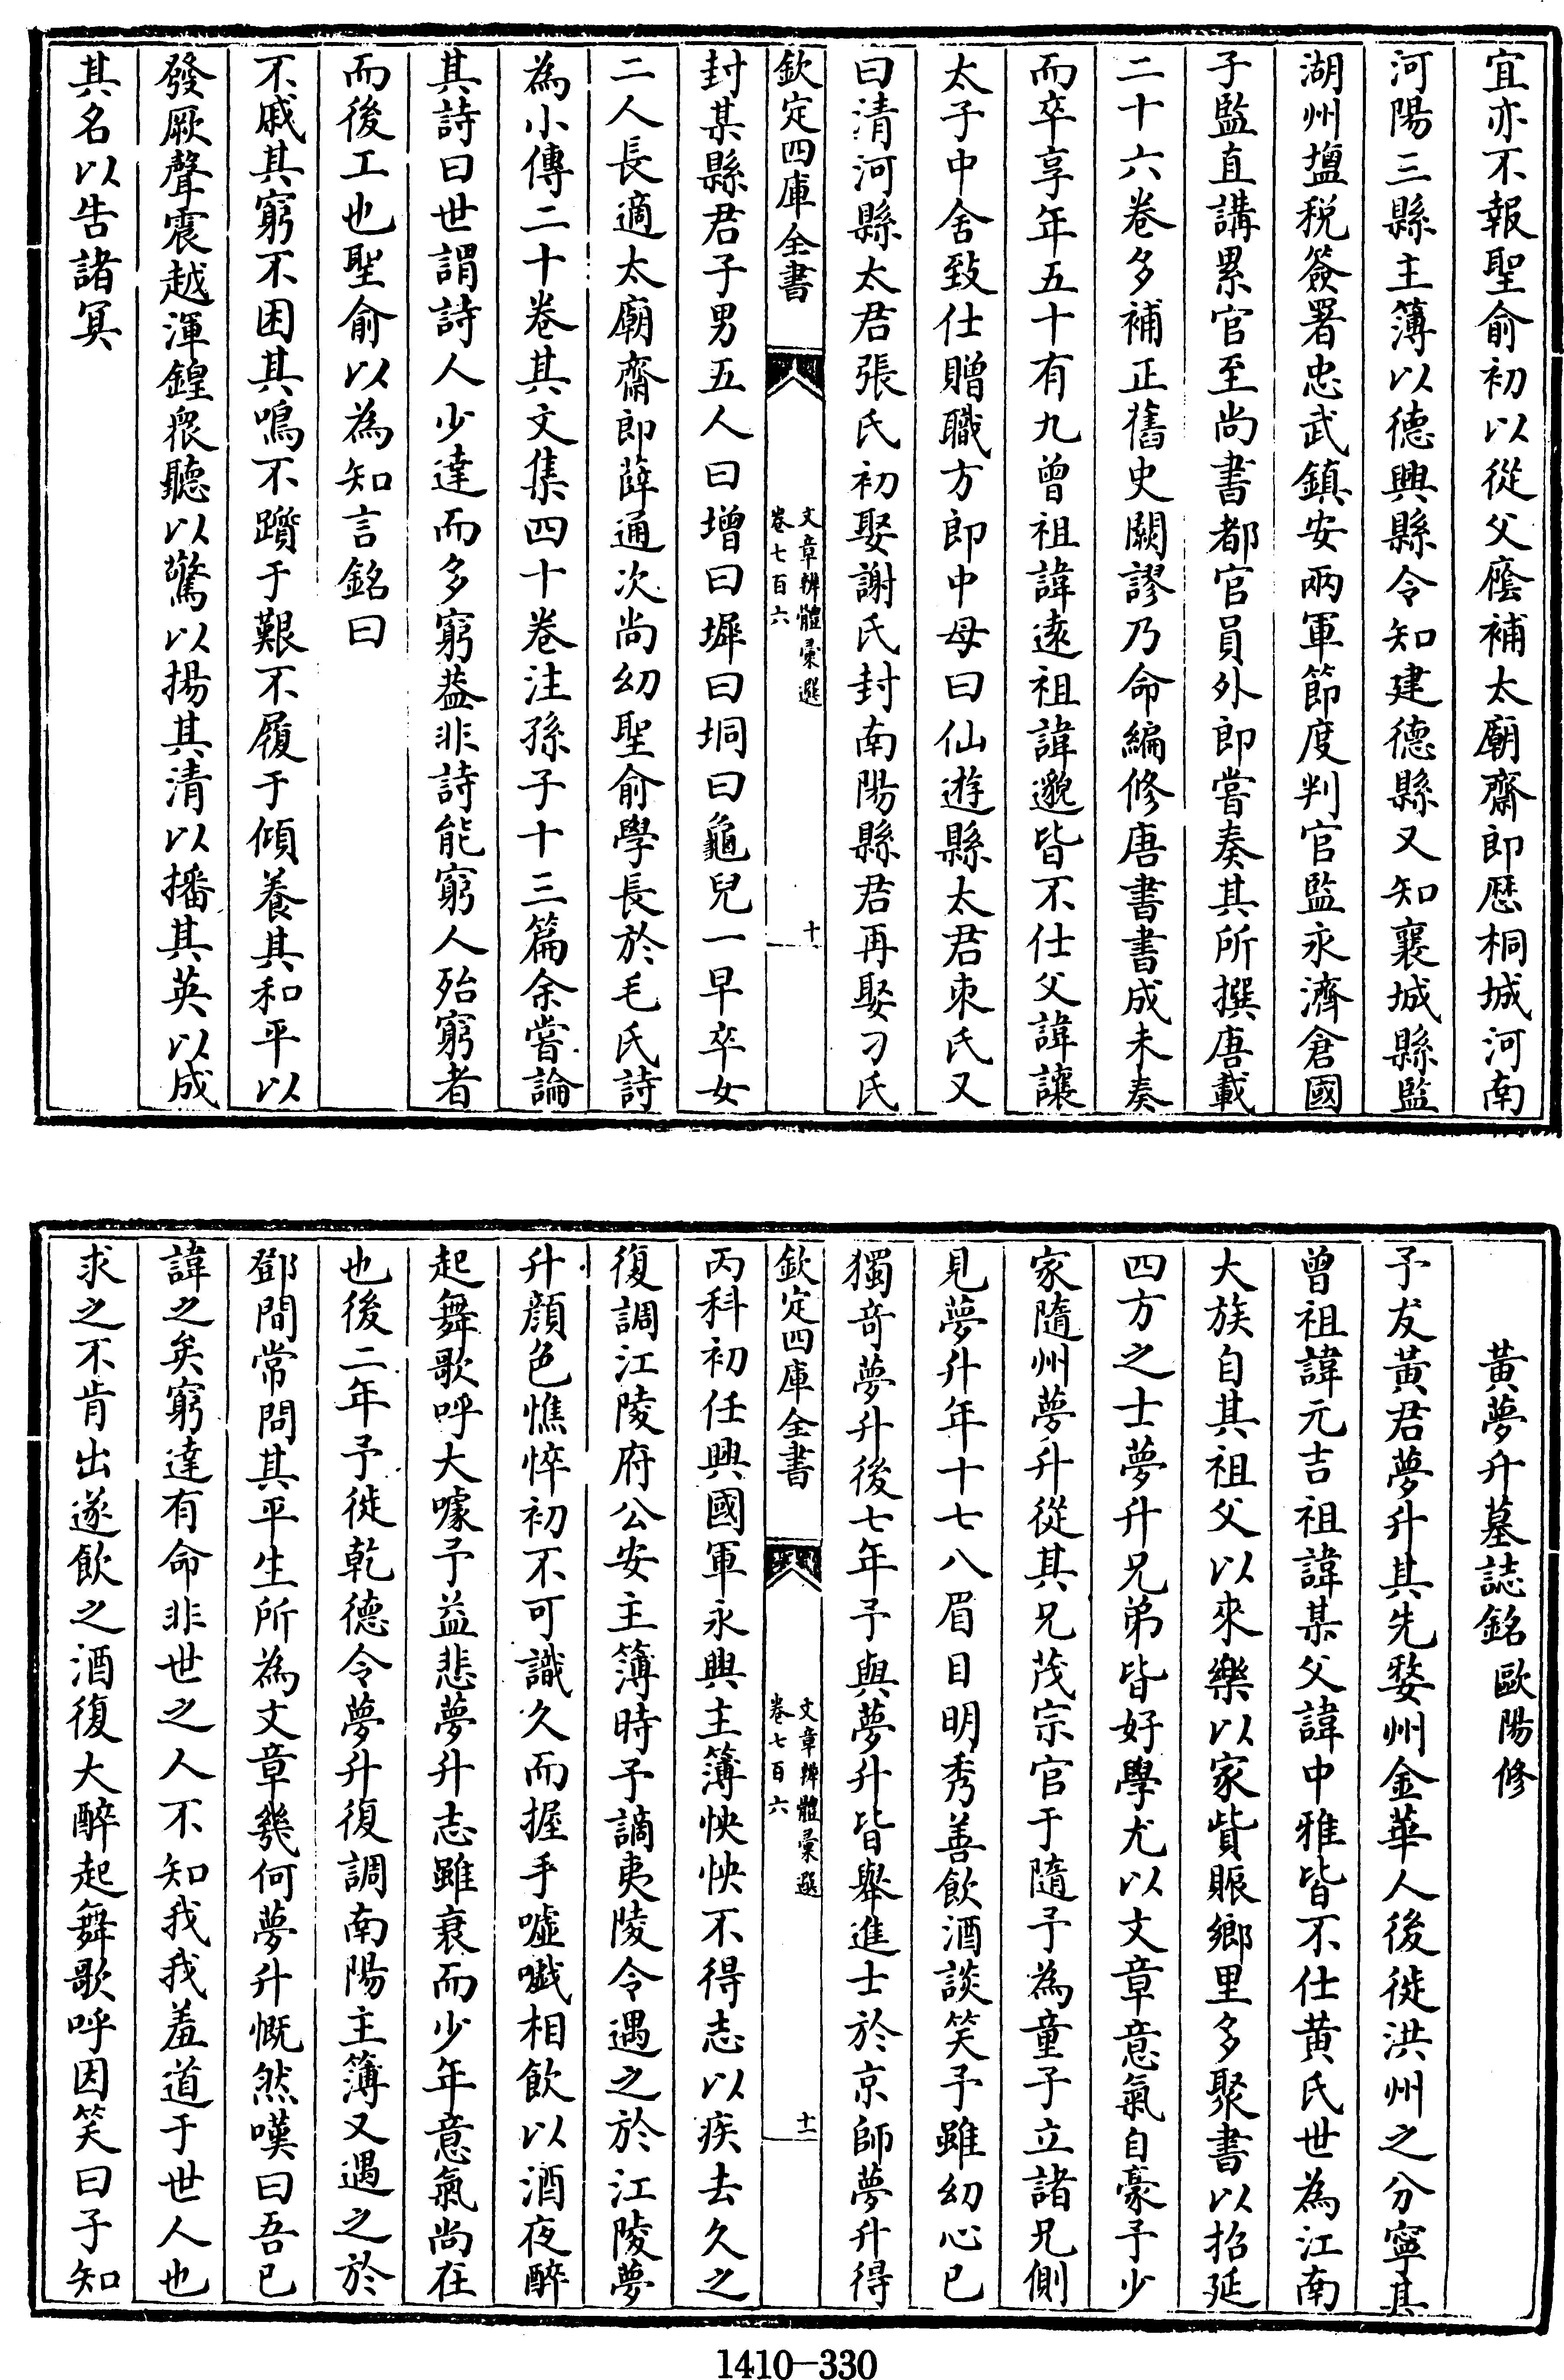 宜亦不報聖俞初以從父廕補太廟齋郎歴桐城河南
河陽三縣主簿以德興縣令知建德縣又知襄城縣監
湖州鹽税簽署忠武鎮安兩軍節度判官監永濟倉國
子監直講累官至尚書都官員外郎嘗奏其所撰唐載
二十六卷多補正舊史闕謬乃命編修唐書書成未奏
而卒享年五十有九曾祖諱逺祖諱邈皆不仕父諱讓
太子中舍致仕贈職方郎中母曰仙遊縣太君束氏又
曰清河縣太君張氏初娶謝氏封南陽縣君再娶刁氏
欽定四庫全書
文章辨體彙選
卷七百六
十
封某縣君子男五人曰增曰墀曰坰曰龜兒一早卒女
二人長適太廟齋郎薛通次尚幼聖俞學長於毛氏詩
為小傳二十卷其文集四十卷注孫子十三篇余嘗論
其詩曰世謂詩人少達而多窮葢非詩能窮人殆窮者
而後工也聖俞以為知言銘曰
不戚其窮不困其鳴不躓于艱不履于傾養其和平以
發厥聲震越渾鍠衆聽以驚以揚其清以播其英以成
其名以告諸冥
黃夢升墓誌銘 歐陽修
予友黃君夢升其先婺州金華人後徙洪州之分寧其
曾祖諱元吉祖諱某父諱中雅皆不仕黃氏世為江南
大族自其祖父以來樂以家貲賑鄉里多聚書以招延
四方之士夢升兄弟皆好學尤以文章意氣自豪予少
家隨州夢升從其兄茂宗官于隨予為童子立諸兄側
見夢升年十七八眉目明秀善飲酒談笑予雖幼心已
獨竒夢升後七年予與夢升皆舉進士於京師夢升得
欽定四庫全書
文章辨體彙選
卷七百六
十一
丙科初任興國軍永興主簿怏怏不得志以疾去久之
復調江陵府公安主簿時予謫夷陵令遇之於江陵夢
升顔色憔悴初不可識久而握手噓嚱相飲以酒夜醉
起舞歌呼大噱予益悲夢升志雖衰而少年意氣尚在
也後二年予徙乾德令夢升復調南陽主簿又遇之於
鄧間常問其平生所為文章幾何夢升慨然嘆曰吾已
諱之矣窮達有命非世之人不知我我羞道于世人也
求之不肯出遂飲之酒復大醉起舞歌呼因笑曰子知
1410-330